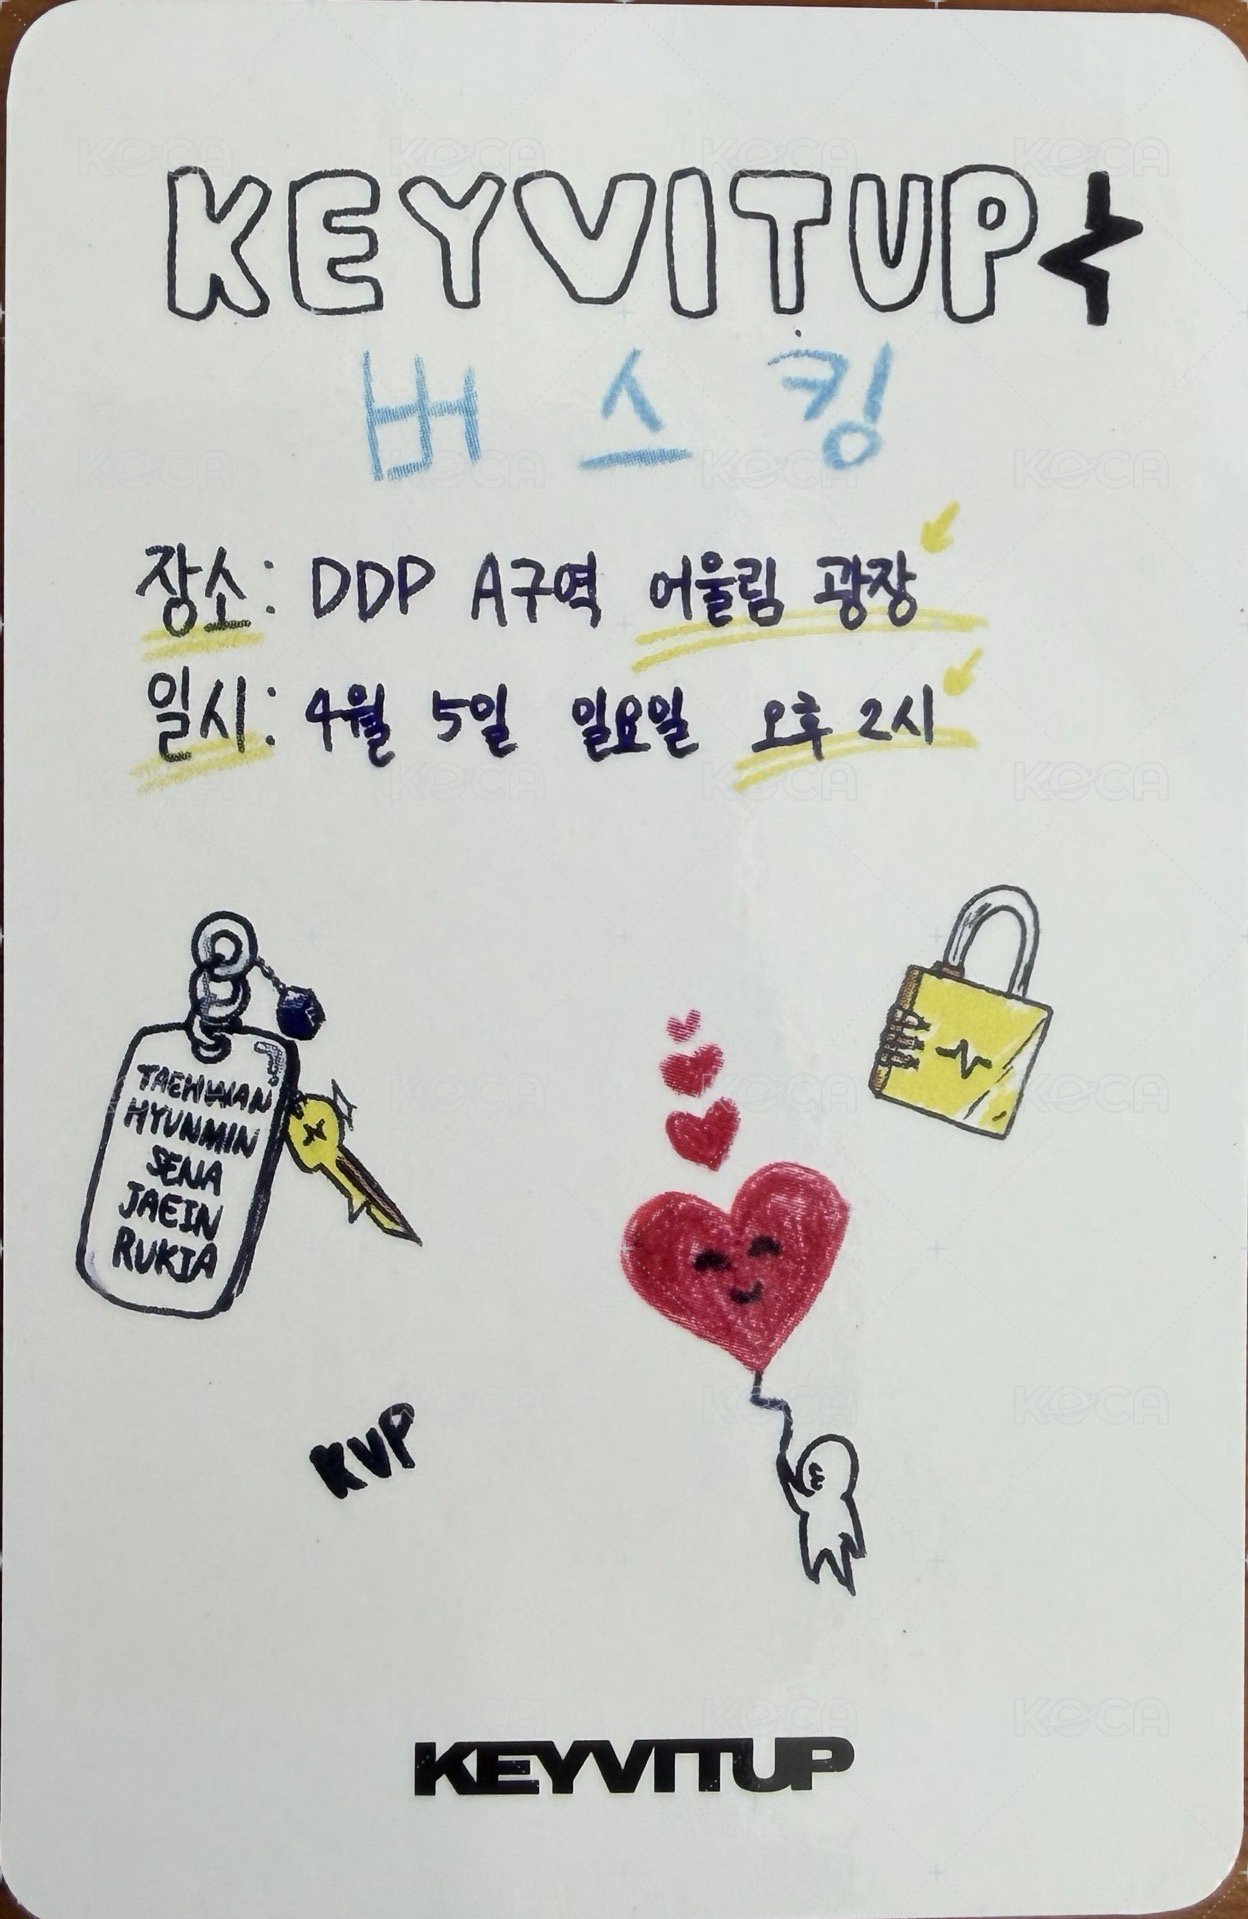 KEYVITUP
버스킹
장소: DDP A구역 어울림 광장
일시: 4월 5일 일요일 오후 2시
TAEHWAN
HYUNMIN
SENA
JAEIN
RUKIA
KVP
KEYVITUP